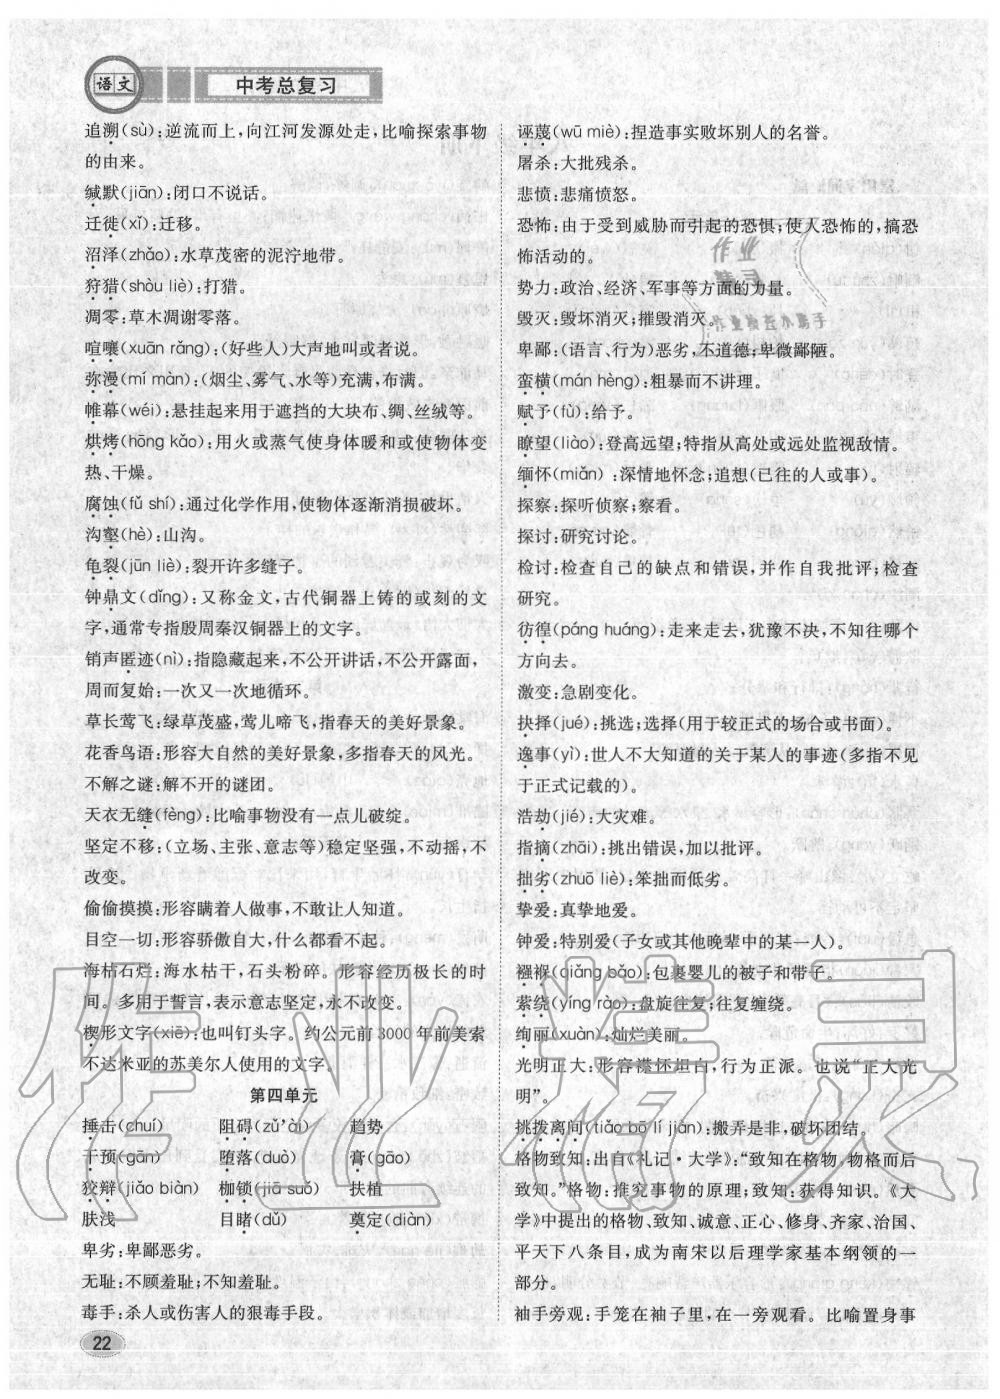 语文
中考总复习
追溯(sù):逆流而上,向江河发源处走,比喻探索事物
的由来。
缄默(jiān):闭口不说话。
迁徙(xǐ):迁移。
沼泽(zhǎo):水草茂密的泥泞地带。
狩猎(shòu liè):打猎。
凋零:草木凋谢零落。
喧嚷(xuān rǎng):(好些人)大声地叫或者说。
弥漫(mí màn):(烟尘、雾气、水等)充满,布满。
帷幕(wéi):悬挂起来用于遮挡的大块布、绸、丝绒等。
烘烤(hōng kǎo):用火或蒸气使身体暖和或使物体变
热、干燥。
腐蚀(fǔ shí):通过化学作用,使物体逐渐消损破坏。
沟壑(hè):山沟。
龟裂(jūn liè):裂开许多缝子。
钟鼎文(dǐng):又称金文,古代铜器上铸的或刻的文
字,通常专指殷周秦汉铜器上的文字。
销声匿迹(nì):指隐藏起来,不公开讲话,不公开露面,
周而复始:一次又一次地循环。
草长莺飞:绿草茂盛,莺儿啼飞,指春天的美好景象。
花香鸟语:形容大自然的美好景象,多指春天的风光。
不解之谜:解不开的谜团。
天衣无缝(fèng):比喻事物没有一点儿破绽。
坚定不移:(立场、主张、意志等)稳定坚强,不动摇,不
改变。
偷偷摸摸:形容瞒着人做事,不敢让人知道。
目空一切:形容骄傲自大,什么都看不起。
海枯石烂:海水枯干,石头粉碎。形容经历极长的时
间。多用于誓言,表示意志坚定,永不改变。
楔形文字(xiē):也叫钉头字。约公元前3000年前美索
不达米亚的苏美尔人使用的文字。
第四单元
捶击(chuí) 阻碍(zǔ ài) 趋势
干预(gān) 堕落(duò) 膏(gāo)
狡辩(jiǎo biàn) 枷锁(jiā suǒ) 扶植
肤浅 目睹(dǔ) 奠定(diàn)
卑劣:卑鄙恶劣。
无耻:不顾羞耻;不知羞耻。
毒手:杀人或伤害人的狠毒手段。
22
诬蔑(wū miè):捏造事实败坏别人的名誉。
屠杀:大批残杀。
悲愤:悲痛愤怒。
恐怖:由于受到威胁而引起的恐惧;使人恐怖的,搞恐
怖活动的。
势力:政治、经济、军事等方面的力量。
毁灭:毁坏消灭;摧毁消灭。
卑鄙:(语言、行为)恶劣,不道德;卑微鄙陋。
蛮横(mán hèng):粗暴而不讲理。
赋予(fù):给予。
瞭望(liào):登高远望;特指从高处或远处监视敌情。
缅怀(miǎn):深情地怀念;追想(已往的人或事)。
探察:探听侦察;察看。
探讨:研究讨论。
检讨:检查自己的缺点和错误,并作自我批评;检查
研究。
彷徨(páng huáng):走来走去,犹豫不决,不知往哪个
方向去。
激变:急剧变化。
抉择(jué):挑选;选择(用于较正式的场合或书面)。
逸事(yì):世人不大知道的关于某人的事迹(多指不见
于正式记载的)。
浩劫(jié):大灾难。
指摘(zhāi):挑出错误,加以批评。
拙劣(zhuō liè):笨拙而低劣。
挚爱:真挚地爱。
钟爱:特别爱(子女或其他晚辈中的某一人)。
襁褓(qiǎng bǎo):包裹婴儿的被子和带子。
萦绕(yíng rào):盘旋往复;往复缠绕。
绚丽(xuàn):灿烂美丽。
光明正大:形容襟怀坦白,行为正派。也说“正大光
明”。
挑拨离间(tiǎo bō lí jiàn):搬弄是非,破坏团结。
格物致知:出自《礼记·大学》:“致知在格物,物格而后
致知。”格物:推究事物的原理;致知:获得知识。《大
学》中提出的格物、致知、诚意、正心、修身、齐家、治国、
平天下八条目,成为南宋以后理学家基本纲领的一
部分。
袖手旁观:手笼在袖子里,在一旁观看。比喻置身事
作业
作业检查小帮手
作业精灵